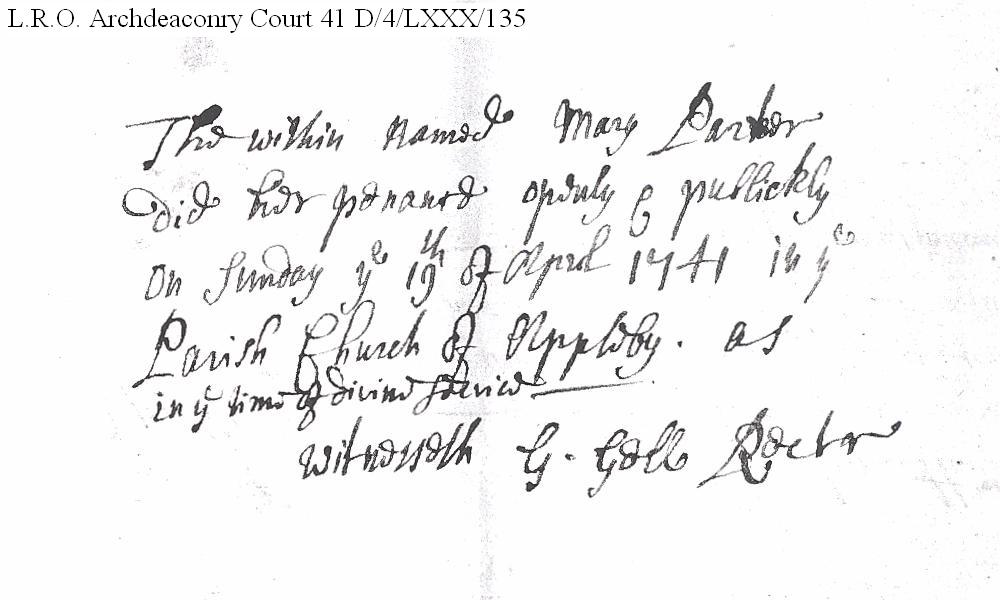 L.R.O. Archdeaconry Court 41 D/4/LXXX/135
The within named Mary Parker
did her penance openly & publickly
on Sunday ye 19th of April 1741 in ye
Parish Church of Appleby. as
in ye time of divine service
witnesseth G. Gell Rector